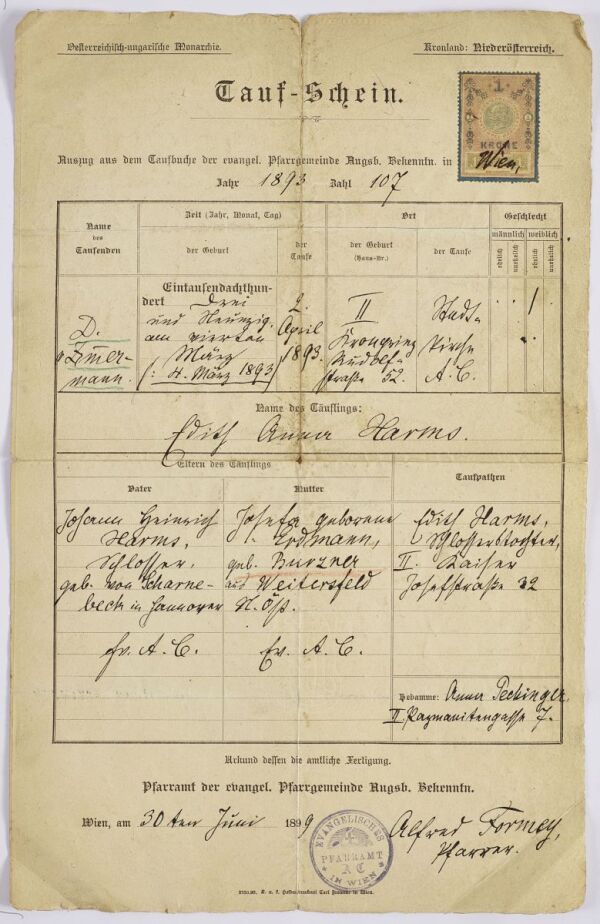 Oesterreichisch-ungarische Monarchie.
Kronland: Niederösterreich.
Tauf-Schein.
1
KRONE
Auszug aus dem Taufbuche der evangel. Pfarrgemeinde Augsb. Bekenntn. in Wien,
Jahr 1893 Zahl 107
Name des Taufenden
Zeit (Jahr, Monat, Tag)
Ort
Geschlecht
der Geburt
der Taufe
der Geburt (Haus-Nr.)
der Taufe
männlich
weiblich
ehelich
unehelich
ehelich
unehelich
D. Zimer-
mann.
Eintausendachthun-
dert Drei
und Neunzig.
am vierten
März
(: 4. März 1893)
2.
April
1893.
II
Kronprinz
Rudolf-
straße 52.
Stadt-
kirche
A. C.
Name des Täuflings:
Edith Anna Harms.
Eltern des Täuflings
Taufpathen
Vater
Mutter
Johann Heinrich
Harms,
Schlosser,
geb. von Scharne-
beck in Hannover
Ev. A. C.
Josefa geborene
Erdmann,
geb. Burzner
aus Weitersfeld
N. Öst.
Ev. A. C.
Edith Harms,
Schlosserstochter,
II. Kaiser
Josefstraße 32
Hebamme: Anna Pechinger
II. Pazmanitengasse 7.
Urkund dessen die amtliche Fertigung.
Pfarramt der evangel. Pfarrgemeinde Augsb. Bekenntn.
Wien, am 30ten Juni 1899
EVANGELISCHES
PFARRAMT
A C
IN WIEN
Alfred Formey,
Pfarrer.